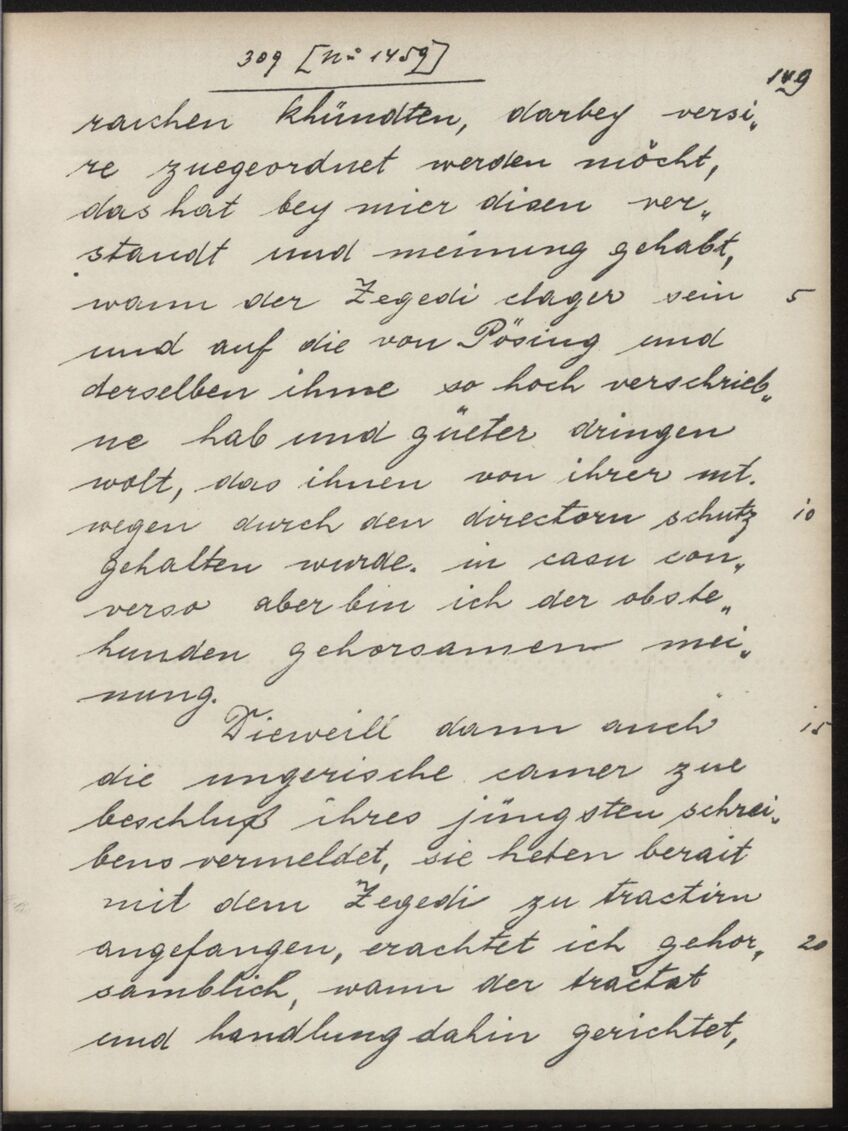 309 [No 1459]
149
raichen khündten, darbey versi„
re zuegeordnet werden möcht,
das hat bey mier disen ver„
standt und meinung gehabt,
wann der Zegedi clager sein 5
und auf die von Pösing und
derselben ihme so hoch verschrieb„
ne hab und güeter dringen
wolt, das ihnen von ihrer mt.
wegen durch den directorn schutz 10
gehalten wurde. in casu con„
verso aber bin ich der obste„
hunden gehorsamen mei„
nung.
Dieweill dann auch 15
die ungerische camer zue
beschluß ihres jüngsten schrei„
bens vermeldet, sie heten berait
mit dem Zegedi zu tractirn
angefangen, erachtet ich gehor„ 20
samblich, wann der tractat
und handlung dahin gerichtet,